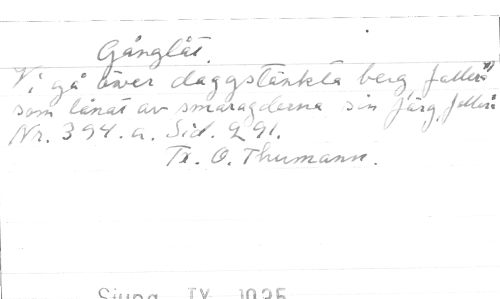 Gånglåt.
Vi gå över daggstänkta berg, fallera
som lånat av smaragderna sin färg, fallera
Nr. 394. a. Sid. 291.
Tr. O. Thumann.
Sjung IX 1935